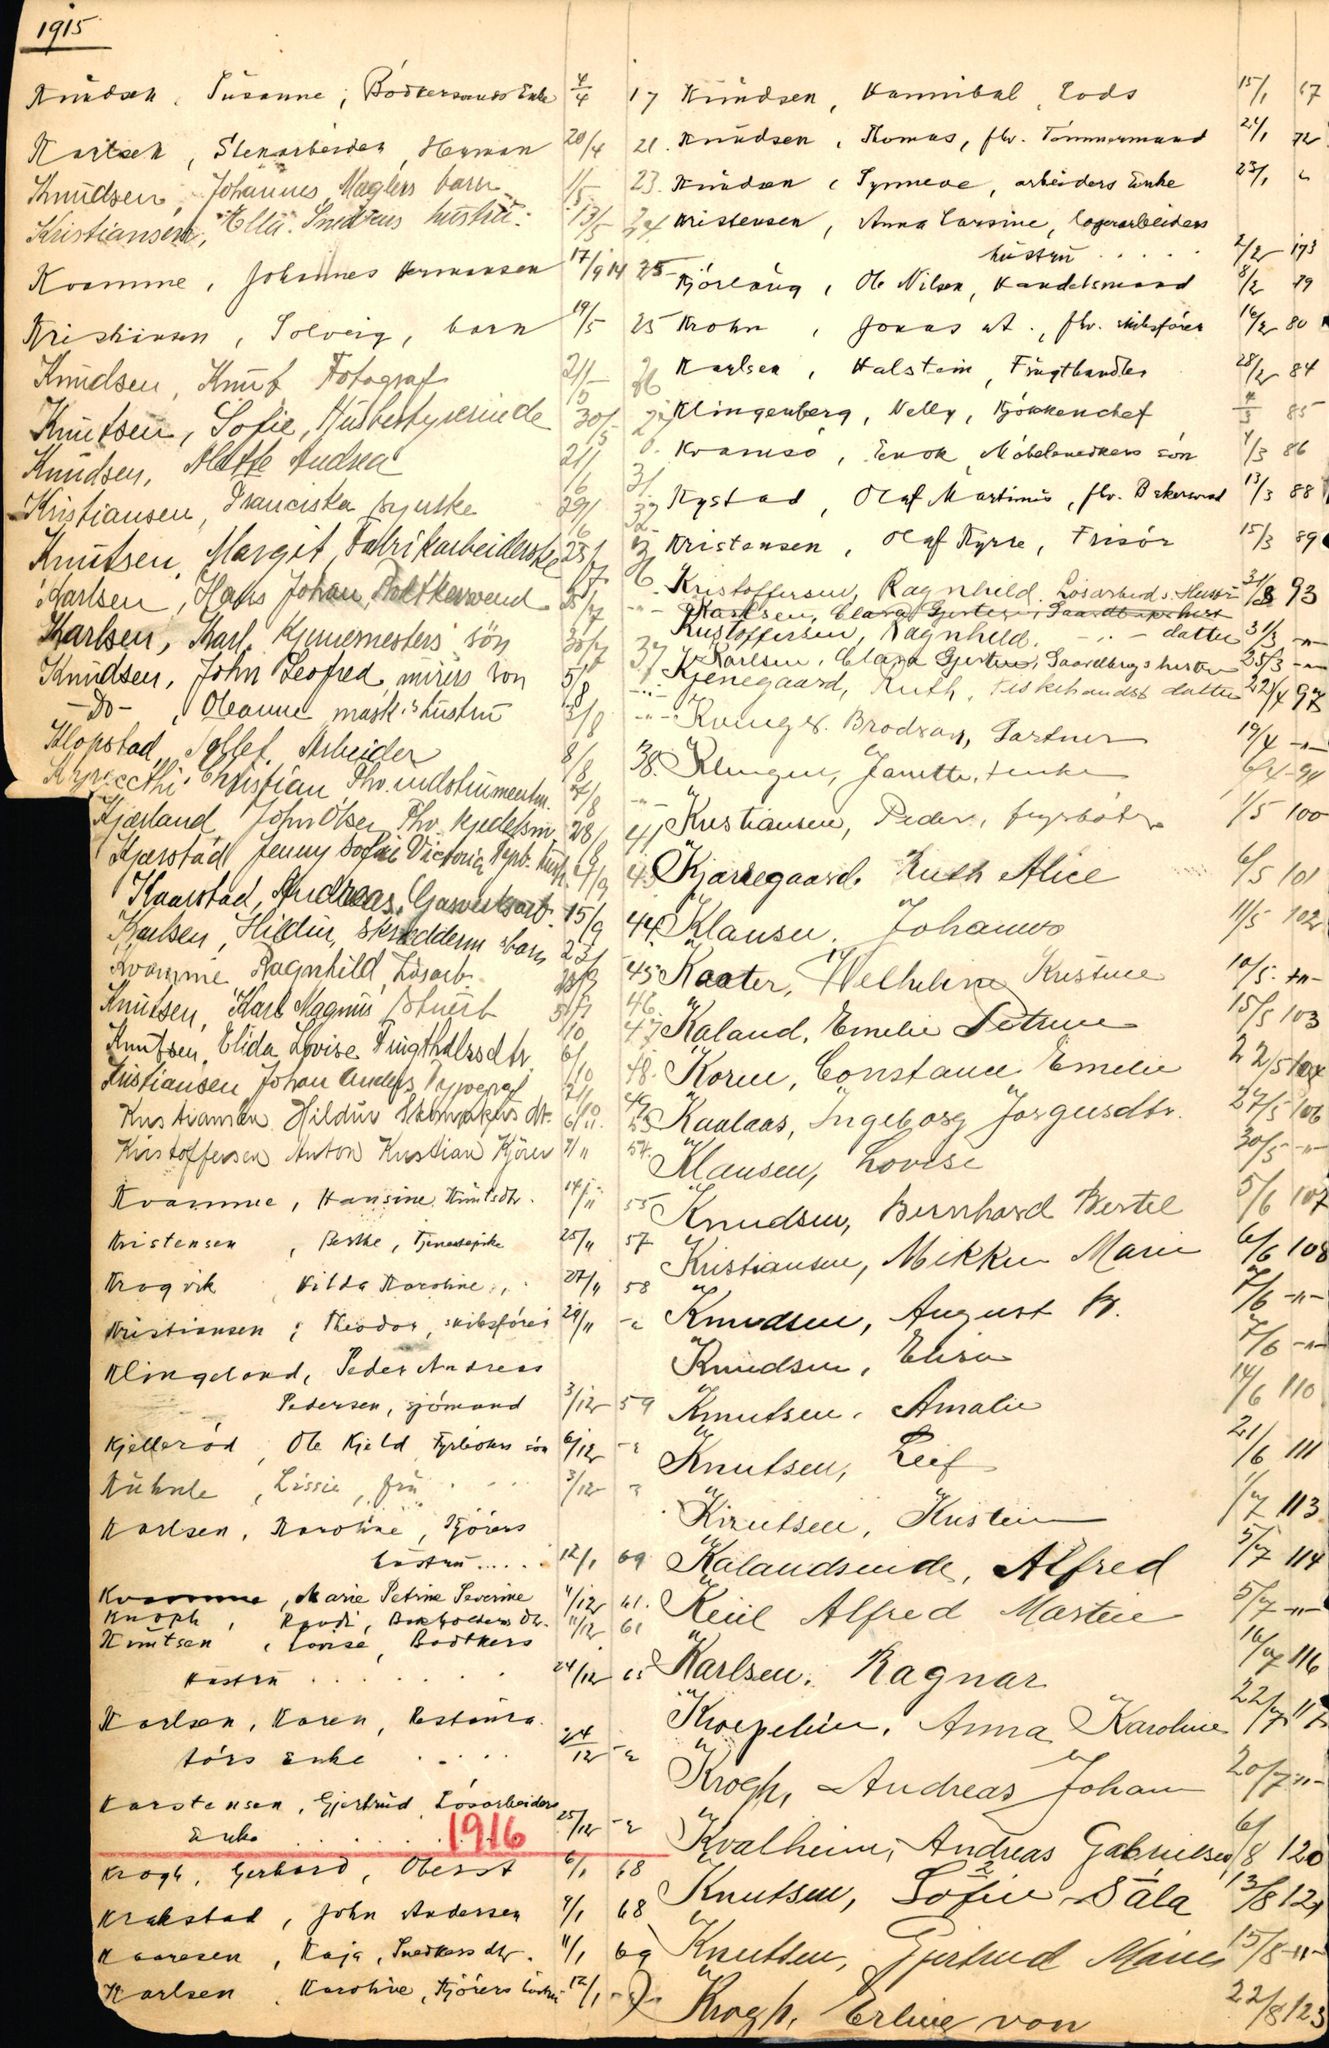 1915
Knudsen, Susanne, Bödkersvends Enke 4/4 17
Karlsen, Stenarbeider, Herman 20/4 21.
Knudsen, Johannes Mæglers barn 1/5 23.
Kristiansen, Ella. Snedkers hustru. 13/5 24.
Kvamme, Johannes Hermansen 17/9 14 25
Kristiansen, Solveig, barn 19/5 25
Knudsen, Knut Fotograf 21/5 26
Knutsen, Sofie, Husbestyrerinde 30/5 27
Knudsen, Mette Andrea 21/6 31
Kristiansen, Franciska syerske 29/6 32
Knutsen, Margit, Fabrikarbeiderske 23/7 36
Karlsen, Hans Johan, Bødkersvend 25/7 -"-
Karlsen, Karl, Kjinemesters sön 30/7 37
Knudsen, John Leofred, murers son 5/8
-Do-, Oleanne mask.s hustru 3/8 -"-
Klopstad, Tollef, Arbeider 8/8 38.
Christian Fhv. instrumentm. 24/8 -"-
Kjærland, John Olsen Fhv. kjedelsm. 28/8 41
Kjærstad Jenny Sofie Victoria Typ. hust. 4/9 43
Kaarstad, Andreas, Gasverksarb. 15/9 44.
Karlsen, Hildur, skrædderm s barn 23/9 45
Kvamme Ragnhild, Løsarb. 46.
Knutsen, Karl Magnus Stuert 47
Knutsen, Elida Lovise Frugthdlrsdtr. 6/10 48.
Kristiansen Johan Anders Typograf 21/10 49
Kristiansen Hildur Skomakers dt. 6/11. 53
Kristoffersen Anton Kristian Kjörer 7/11 54.
Kvamme, Hansine Knutsdtr. 14/11 55
Kristensen, Berthe, Tjenestepike 25/11 57
Krogvik, Hilda Karoline, 27/11 58
Kristiansen, Theodor, skibsförer 29/11 -"
Klingeland, Peder Andreas
Pedersen, sjömand 3/12 59
Kjelleröd, Ole Kjeld, Fyrböters sön 6/12 -"
Kuhnle, Lissie, fru 3/12 "
Karlsen, Karoline, Kjörers
hustru..... 12/1 69
Kvamme, Marie Petrine Severine 11/12 61.
Knoph, Randi, Bokholders dtr. 11/12 61
Knutsen, Lovise, Bödkers
Hustru ...... 24/12 65
Karlsen, Karen, Restaura-
törs Enke .... 24/12 -"
Karstensen, Gjertrud, Lösarbeiders
Enke ...... 25/12 -"
1916
Krogh, Gerhard, Oberst 6/1 68
Krakstad, John Andersen 9/1 68
Kaaresen, Kaja, Snedkers dtr. 11/1 69
Karlsen, Karoline, Kjörers hustru 12/1 -"-
Knudsen, Hannibal, Lods 15/1 67
Knudsen, Thomas, fhv. Tömmermand 21/1 72
Knudsen, Synneve, arbeiders Enke 23/1 "
Kristensen, Anna Larsine, lagerarbeiders
hustru ..... 2/2 173
Kjörlaug, Ole Nilsen, Handelsmand 8/2 79
Krohn, Jonas A., fhv. skibsförer 16/2 80
Karlsen, Halstein, Frugthandler 28/2 84
Klingenberg, Nelly, Kjökkenchef 4/3 85
Kvamsö, Enok, Möbelsnedkers sön 7/3 86
Kystad, Olaf Martinus, fhv. Bakersvend 13/3 88
Kristensen, Olaf Kyrre, Frisör 15/3 89
Kristoffersen, Ragnhild. Løsarbeid.s Hustru 31/3 93
Karlsen, Clara Gjertine, Gaardbr.s hust
Kristoffersen, Ragnhild. -"- datter 31/3 -"-
Karlsen, Clara Gjertine, Gaardbrgs hustru 25/3 -"-
Kjenegaard, Ruth, Fiskehandl.s datter 22/4 97
Brodsan, Gartner 19/4 -"-
Klinger, Janette, enke
Kristiansen, Peder, fyrböter 1/5 100
Kjærregaard. Ruth Alice 6/5 101
Klausen. Johanne 11/5 102
Kaater, Wilhelmine Kristine 10/5. -"-
Kaland, Emelie Petrine 15/5 103
Koren, Constance Emelie 22/5 104
Kaalaas, Ingeborg Jörgensdtr. 27/5 106
Klausen, Lovise 30/5 -"-
Knudsen, Bernhard Bertel 5/6 107
Kristiansen, Mikken Marie 6/6 108
Knudsen, August B. 7/6 -"-
Knudsen, Elisa 7/6 -"-
Knutsen. Amalie 14/6 110
Knutsen, Leif 21/6 111
Knutsen, Kristen 1/7 113
Kalandseide, Alfred 5/7 114
Keiil Alfred Martin 5/7 -"-
Karlsen. Ragnar 16/7 116
Kroepelien. Anna Karoline 22/7 117
Krogh, Andreas Johan 20/7 -"-
Kvalheim, Andreas Gabrielsen 6/8 120
Knutsen, Sofie Sāla 13/8 121
Knutsen, Gjertrud Marie 15/8 -"-
Krogh, Erline von 22/8 123